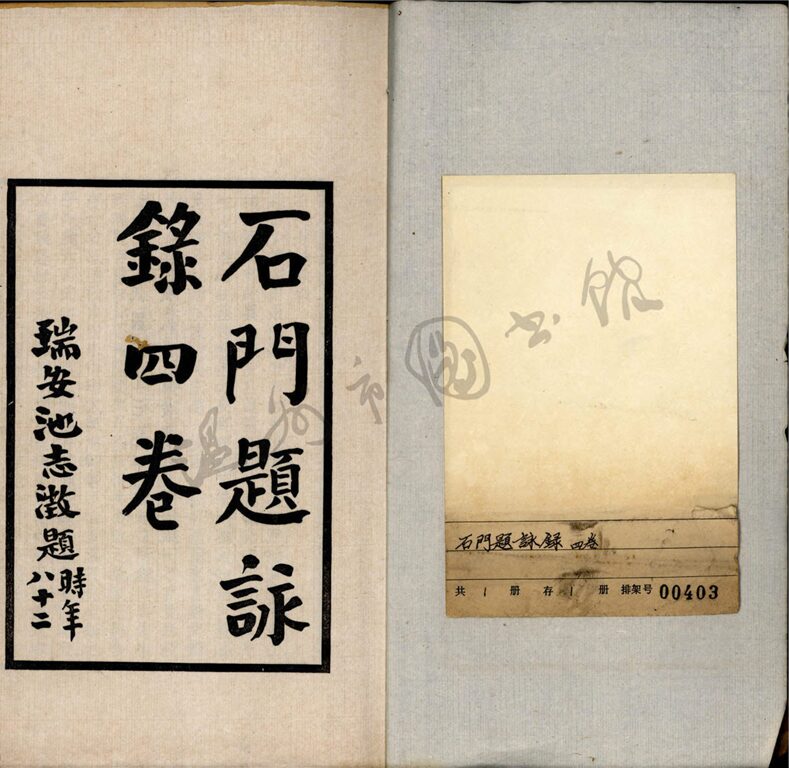 石門題詠
錄四卷
瑞安池志澂題時年
八十二
石門題詠錄 四卷
共 1 册 存 1 册 排架号 00403
温州市图书馆